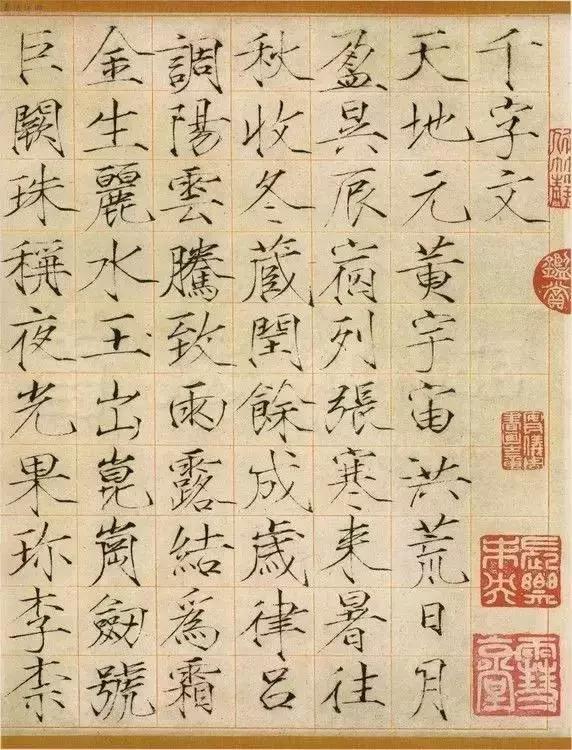 千字文
天地元黄宇宙洪荒日月
盈昃辰宿列張寒来暑往
秋收冬蔵閏餘成歲律呂
調陽雲騰致雨露結爲霜
金生麗水玉出崑崗劍號
巨闕珠稱夜光果珎李柰
鑑賞
長樂未央